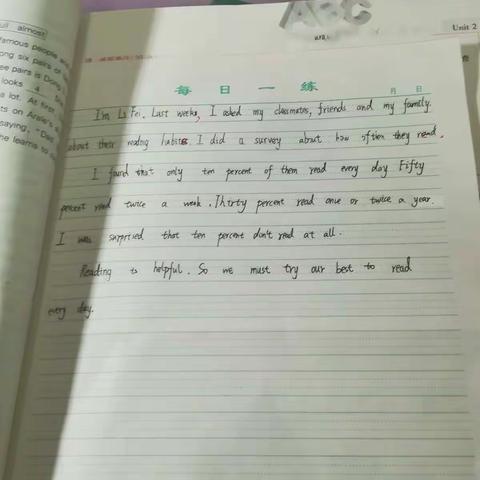 ABC
Unit 2
almost
famous people and
ong six pairs of
ee pairs is Dong
looks 4
a lot. At first
ts on Arale's
saying, "Dad
ne learns to
每日一练
月 日
I'm Li Fei. Last weeks, I asked my classmates, friends and my family.
about their reading habits. I did a survey about how often they read.
I found that only ten percent of them read every day. Fifty
percent read twice a week. Thirty percent read once or twice a year.
I was surprised that ten percent don't read at all.
Reading is helpful. So we must try our best to read
every day.